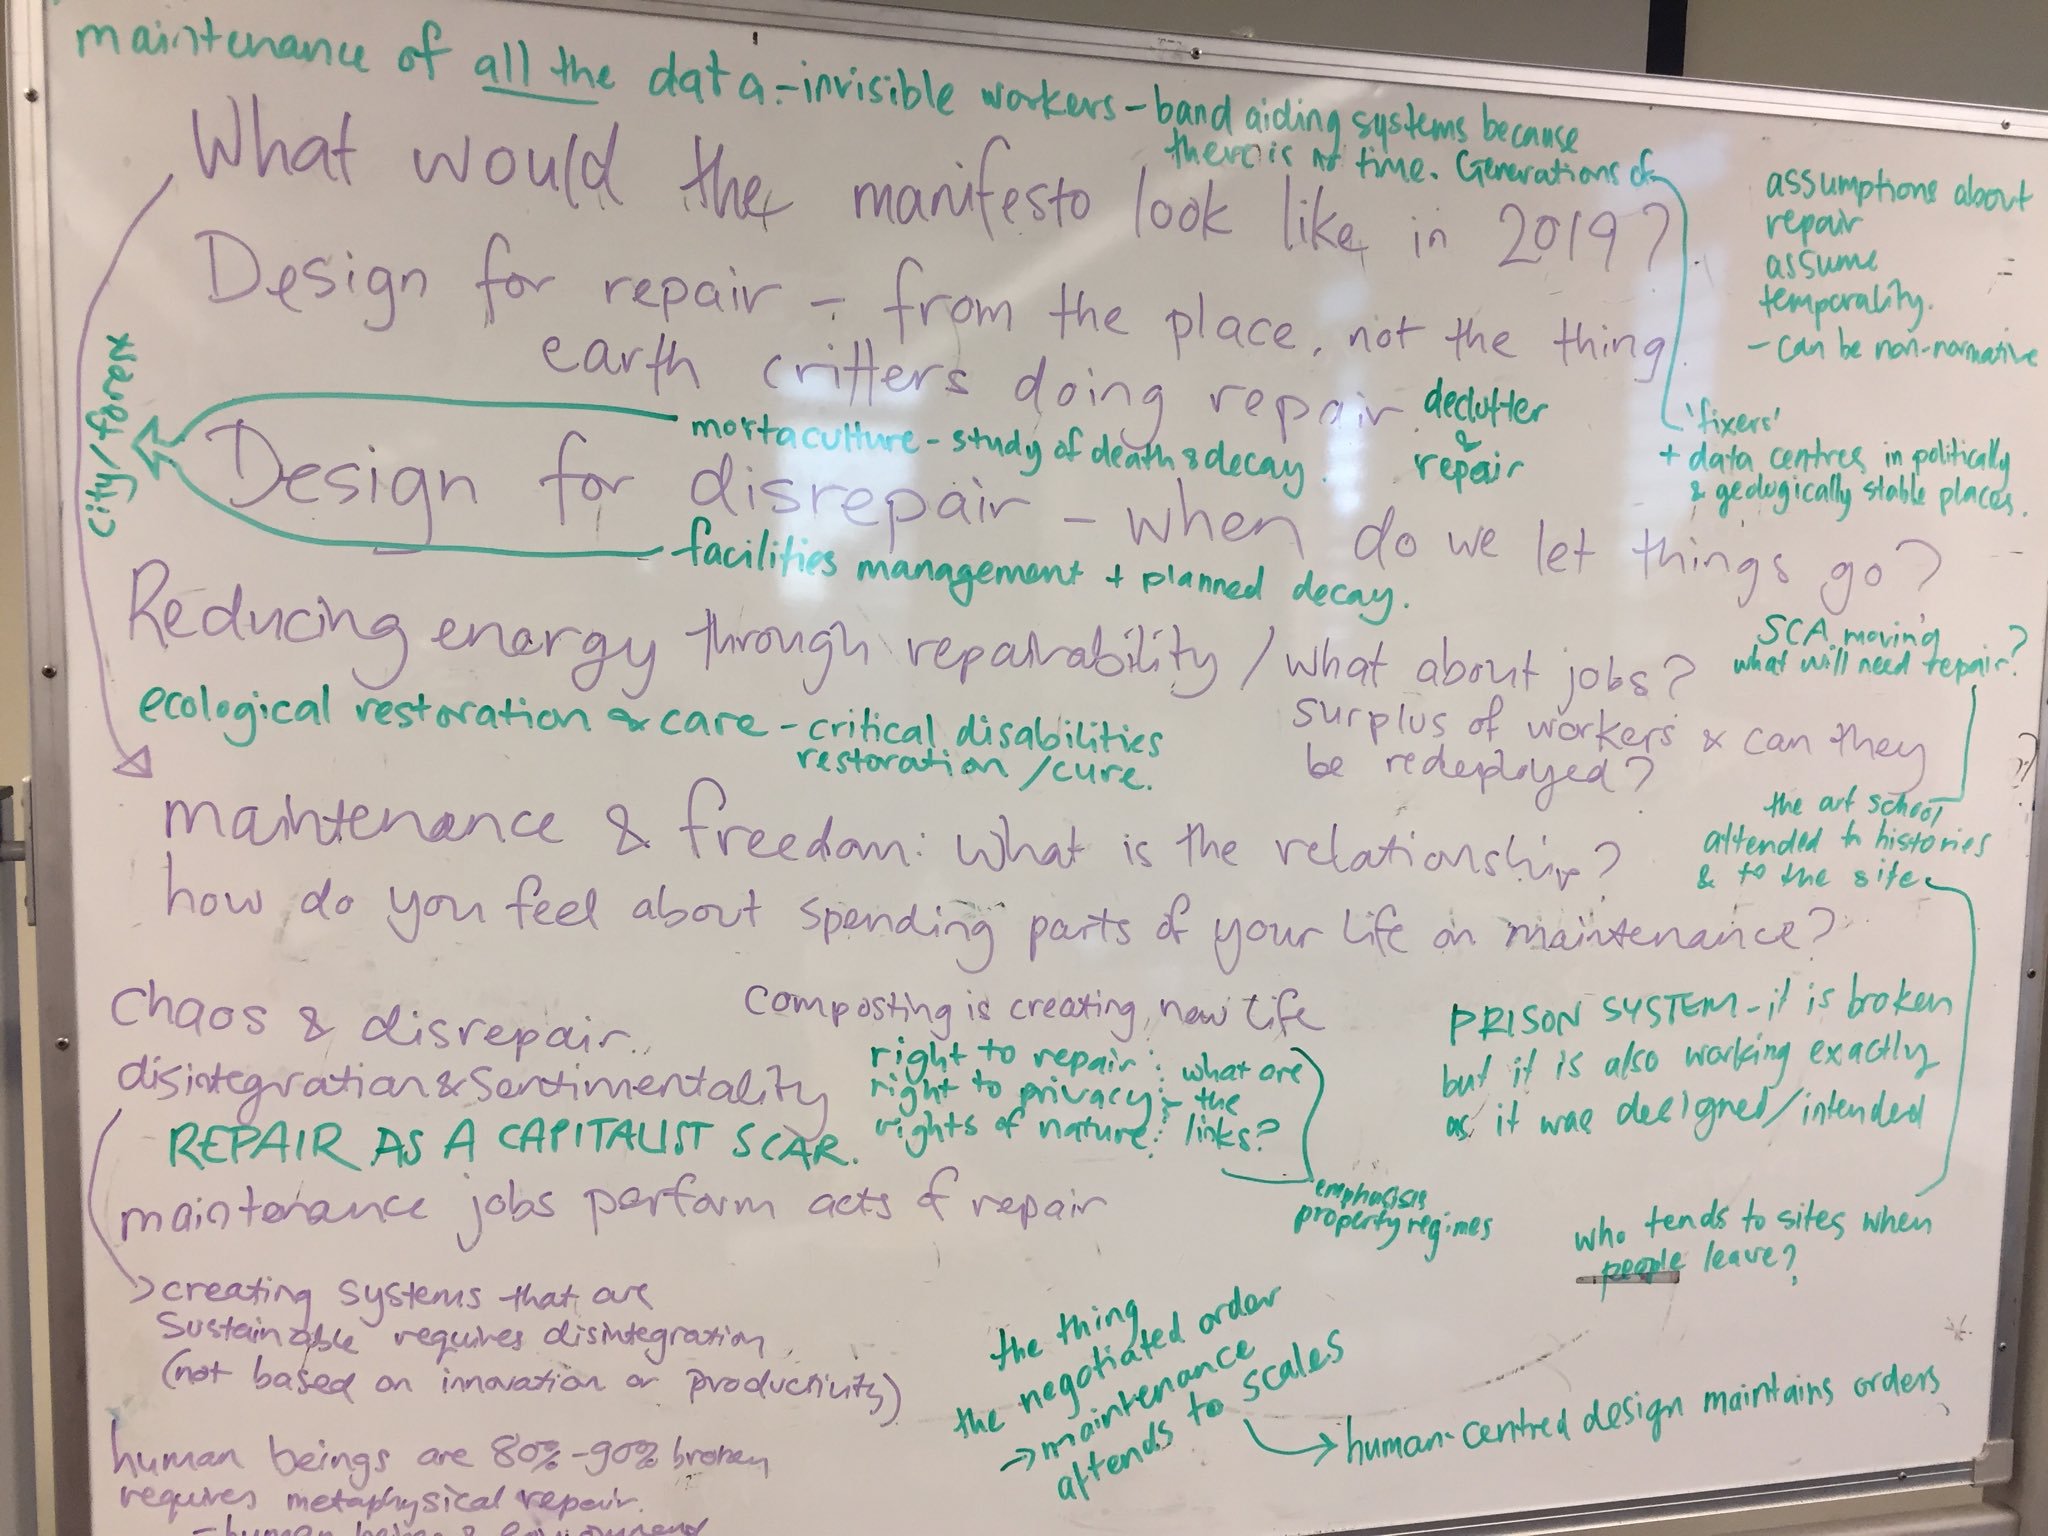 maintenance of all the data.-invisible workers - band aiding systems because
there is no time. Generations of
'fixers'
+ data centres in politically
& geologically stable places.
assumptions about
repair
assume
temporality.
- can be non-normative
What would the manifesto look like in 2019?
Design for repair - from the place, not the thing
earth critters doing repair
declutter
&
repair
mortaculture - study of death & decay.
city/forex
Design for disrepair - when do we let things go?
facilities management + planned decay.
Reducing energy through repairability / what about jobs?
surplus of workers & can they
be redeployed?
SCA moving
what will need repair?
ecological restoration & care - critical disabilities
restoration /cure.
the art school
attended to histories
& to the site
maintenance & freedom: what is the relationship?
how do you feel about spending parts of your life on maintenance?
chaos & disrepair.
composting is creating new life
disintegration & sentimentality
right to repair : what are
right to privacy : the
rights of nature : links?
emphasis
property regimes
PRISON SYSTEM - it is broken
but it is also working exactly
as it was designed/intended
REPAIR AS A CAPITALIST SCAR.
maintenance jobs perform acts of repair
who tends to sites when
people leave?
> creating systems that are
sustainable requires disintegration
(not based on innovation or productivity)
the thing
the negotiated order
→ maintenance
attends to scales
→ human-centred design maintains orders
human beings are 80%-90% broken
requires metaphysical repair.
- human beings &